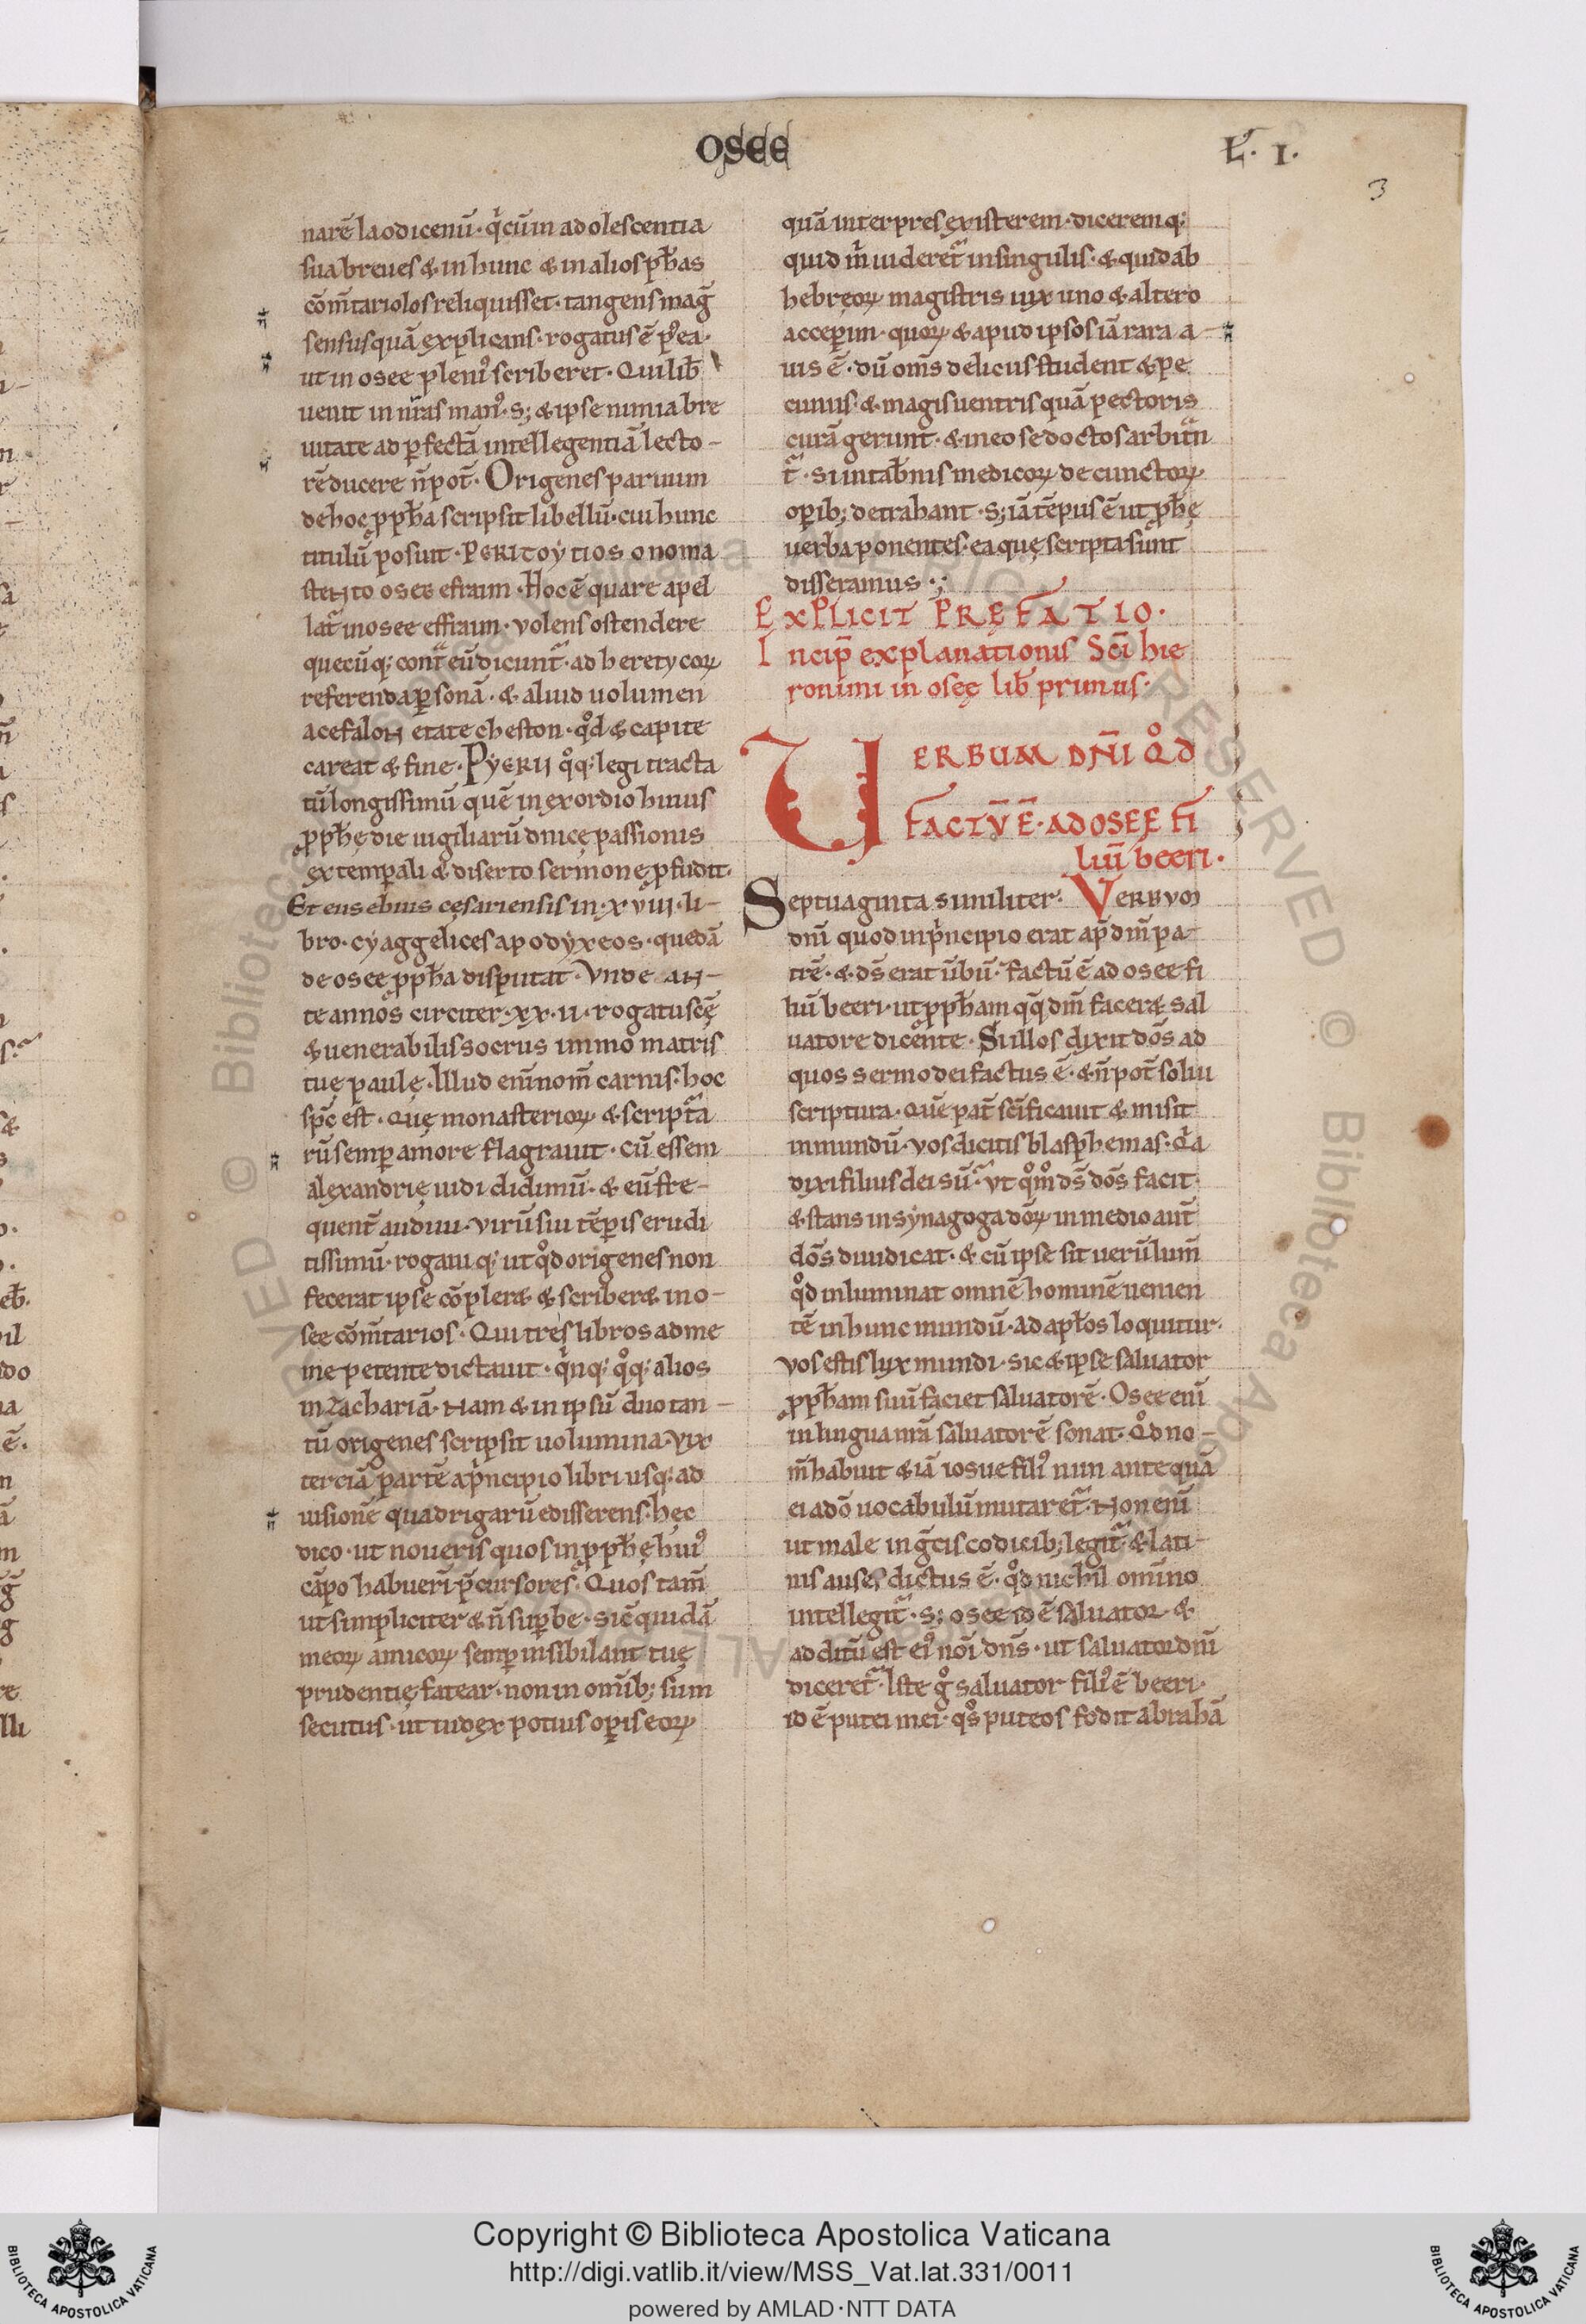 osee
L. I.
3
narē laodicenū· q̇ cū in adolescentia
sua breues & in hunc & in alios ꝓph̄as
cōm̄tariolos reliquisset· tangens mag̃
sensus quā explicans· rogatus ē p̄ea·
ut in osee pleni᾽ scriberet· Qui lib̄
uenit in n̄ras man᾽· s; & ipse nimia bre
uitate ad ꝑfectā intellegentiā lecto-
rē ducere n̄ pot̄· Origenes paruum
de hoc ꝓph̄a scripsit libellū· cui hunc
titulū posuit· PERITOY tios onoma
steнto osee efraim· Hoc ē quare apel
lat᷑ in osee effraim· volens ostendere
quecūq; cont̃ eū dicunt᷑· ad heretycoꝝ
referenda ꝑsonā· & aliud uolumen
acefaloн etate cheston· qd̊ & capite
careat & fine· PYERII qq̊; legi tracta
tū longissimū quē in exordio huius
ꝓph̄ę die uigiliarū dnicę passionis
extemꝑali & diserto sermone ꝓfudit·
Et eusebius cęsariensis in· xviii· li-
bro· cyaggelices apodyxeos· quedā
de osee ꝓph̄a disputat· Vnde aн-
te annos circiter· xx· ii· rogatus cę̄
& uenerabilis socrus immo matris
tuę paulę· Illud eni᷑ nom̄ carnis· hoc
sp̄c est̄· quę monasterioꝝ & script̃a
rū semꝑ amore flagrauit· cū essem
alexandrię uidi didimū· & eū fre-
quent̄ audiui· virū sui tēꝑis erudi
tissimū· rogaui q; ut qd̊ origenes non
fecerat ipse cōpler& & scriber& in o-
see cōm̄tarios· Qui tres libros ad me
me petente dictauit· q̇nq; qq̊; alios
in zachariā· нam & in ipsū duo tan-
tū origenes scripsit uolumina· vix
terciā partē a ṗncipio libri usq; ad
uisionē quadrigarū edisserens· hęc
dico· ut noueris quos in ꝓph̄ę hui᾽
cāpo habueri᷑ p̄cursores· Quos tam̄
ut simpliciter & n̄ suꝑbe· sic̄ quidā
meoꝝ amicoꝝ semꝑ insibilant tuę
prudentię fatear· non in om̄ib; sum
secutus· ut iudex potius oꝑis eoꝝ
quā interpres existerem· diceremq;
quid m̊ uideret᷑ in singulis· & quid ab
hebręoꝝ magistris uix uno & altero
acceꝑim· quoꝝ & apud ipsos iā rara a-
uis ē· dū om̄s deliciis student & pe
cuniis· & magis uentris quā pectoris
curā gerunt· & in eo se doctos arbitr̃n
t᷑· si in tab̄nis medicoꝝ de cunctoꝝ
oꝑib; detrahant· S; iā tēpus ē ut ꝓph̄ę
uerba ponentes· ea quę scripta sunt
disseramus·;
EXPLICIT PRĘFATIO·
Incip̄ explanationis Sc̄i hie
ronimi in oseę lib̄ primus·
VERBUM DN̄I QD̊
FACTV̄ Ē· AD OSEE FI
liū beeri·
Septuaginta similiter· VERBVM
dn̄i quod in ṗncipio erat ap̄ dm̄ pa-
trē· & ds̄ erat ūbū· factū ē ad osee fi
liū beeri· ut ꝓph̄am qq̄ dm̄ facer& sal
uatore dicente· Si illos dixit dōs ad
quos sermo dei factus ē· & n̄ pot̄ solui
scriptura· quē pat̄ scīficauit & misit
in mundū· vos dicitis blasphemas· q̇a
dixi filius dei sū· vt qm̊ ds̄ dōs facit·
& stans in synagoga dōꝝ in medio aut̄
dōs diiudicat· & cū ipse sit uerū lum̄
qd̊ inluminat omnē hominē uenien
tē in hunc mundū· ad apl̄os loquitur·
vos estis lyx mundi· sic & ipse saluator
ꝓph̄am suū faciet saluatorē· Osee eni᷑
in lingua n̄rā saluatorē sonat· Qd̊ no-
m̄ habuit & iā iosue fili᾽ nun antequā
ei a dō uocabulū mutaret᷑· нon eni᷑
ut male in g̃cis codicib; legit᷑· & lati-
nis ause, dictus ē· qd̊ nichil om̄ino
intellegit᷑· s; osee id ē saluator &
additū est ei᾽ nōi dn̄s· ut saluator dn̄i
diceret᷑· Iste g̊ saluator fili᾽ ē beeri·
id ē putei mei· qs̊ puteos fodit abrahā
Copyright © Biblioteca Apostolica Vaticana
http://digi.vatlib.it/view/MSS_Vat.lat.331/0011
powered by AMLAD·NTT DATA
BIBLIOTECA APOSTOLICA VATICANA
BIBLIOTECA APOSTOLICA VATICANA